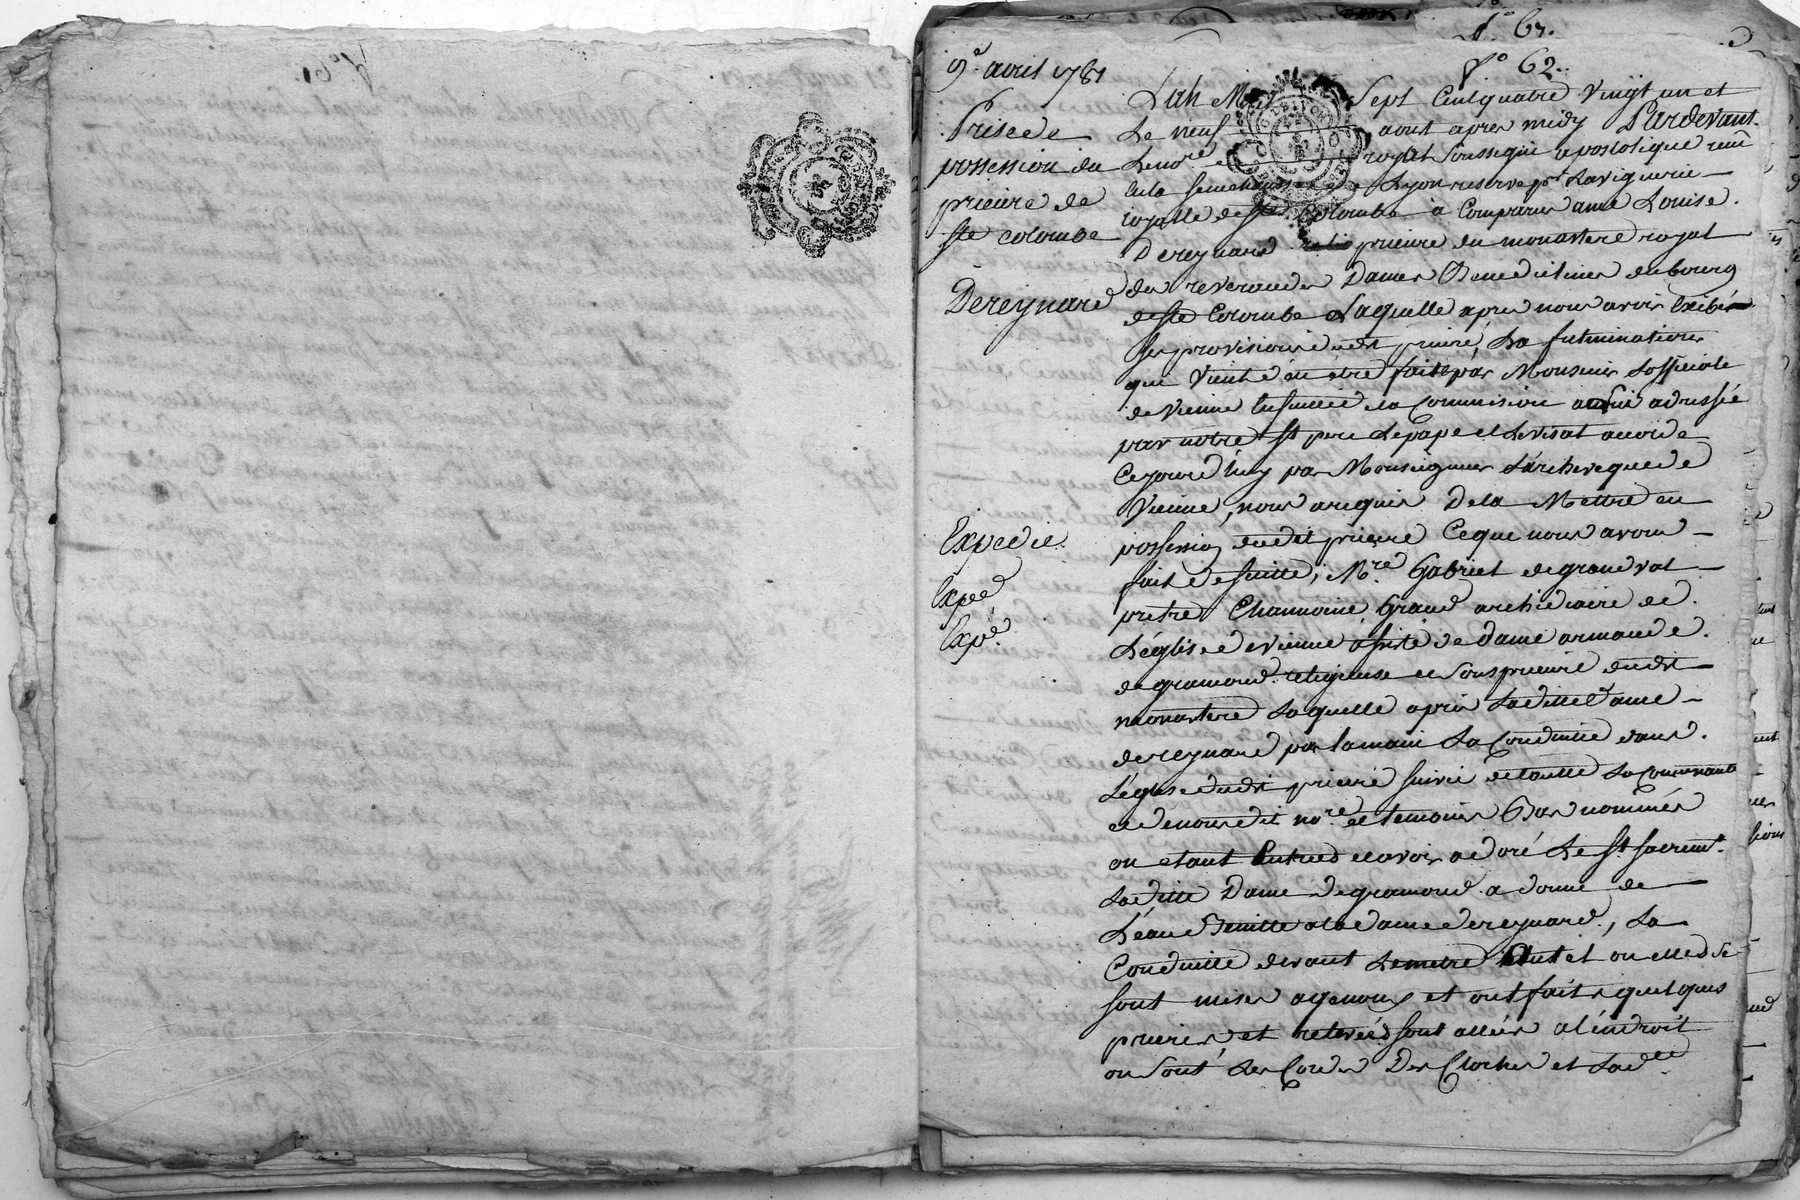 f.° 61.
f.° 61.
f.° 62.
9.e avril 1781
Prise de
possession du
prieuré de
ste colombe
Dereynard
Expedié.
Exped
Expé.
L'an Mil Sept Cent quatre vingt un et
Le neuf aout apres midy Pardevant
Le no.re royal soussigné apostolique
en la senechaussée de Lyon reservé p.r La viguerie
royalle de ste Colombe a Comparu dame Louise
Dereynard prieure du monastere royal
des reverandes Dames Benedictines du bourg
de ste Colombe Laquelle apres nous avoir Exibé
ses provisions dudit prieuré, La fulmination
qui Vient d'en être faite par Monsieur L'officiale
de Vienne Ensuitte de la Commission a adressée
par notre st pere Le pape et Le visat accordé
Cejourd'huy par Monseigneur L'archeveque de
Vienne, nous a requis De la Mettre en
possession dudit prieuré Ce que nous avons
fait de suitte, M.re Gabriel de grandval
pretre Chanoine Grand archidiacre de
L'église de vienne assisté de Dame armande
de gramond religieuse et Sousprieure dudit
monastere Laquelle a pris Laditte Dame
dereynard par la main La Conduitte dans
L'église dudit prieuré suivie de toutte La Communauté
et de nous dit no.re et temoins Bas nommés
ou etant Entrés et avoir adoré Le St. sacrem.t
Laditte Dame De gramond a donné de
L'eau Benitte a la dame dereynard, La
Conduitte devant Le maitre Autel ou elles se
sont mises a genoux et ont fait quelques
prieres et relevées sont allées a l'endroit
ou sont Les Cordes Des Cloches et Lad.e